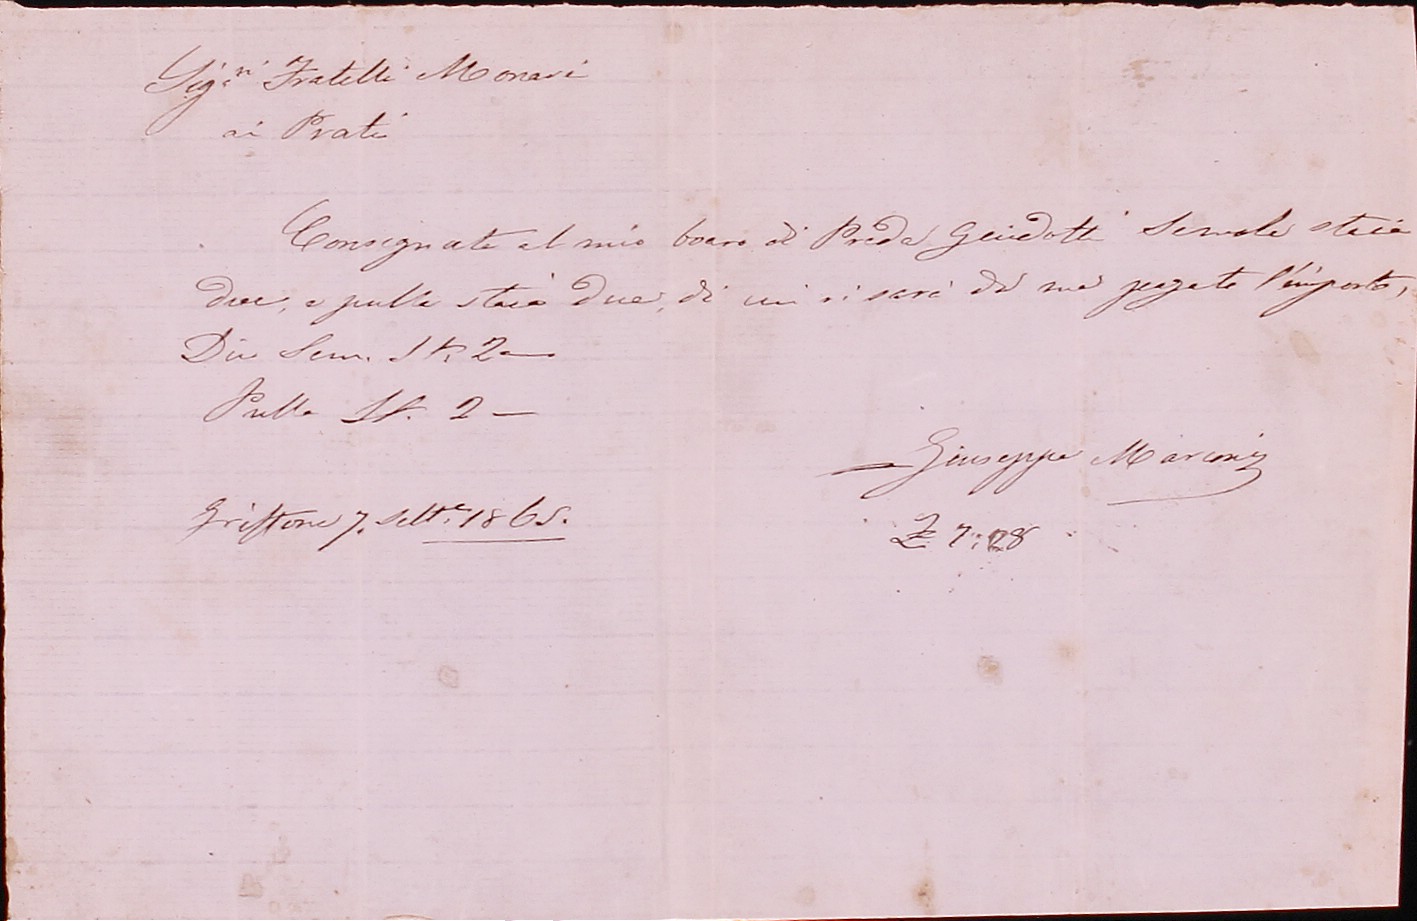 Sig.ri Fratelli Monari
ai Prati
Consegnate al mio boaro di Preda Guidotti Semola staia
due, e pulla staia due, di cui vi sarà da me pagato l'importo,
Dico Sem. St. 2—
Pulla St. 2—
Giuseppe Marconi
Griffone 7. Sett.e 1865.
£ 7:28